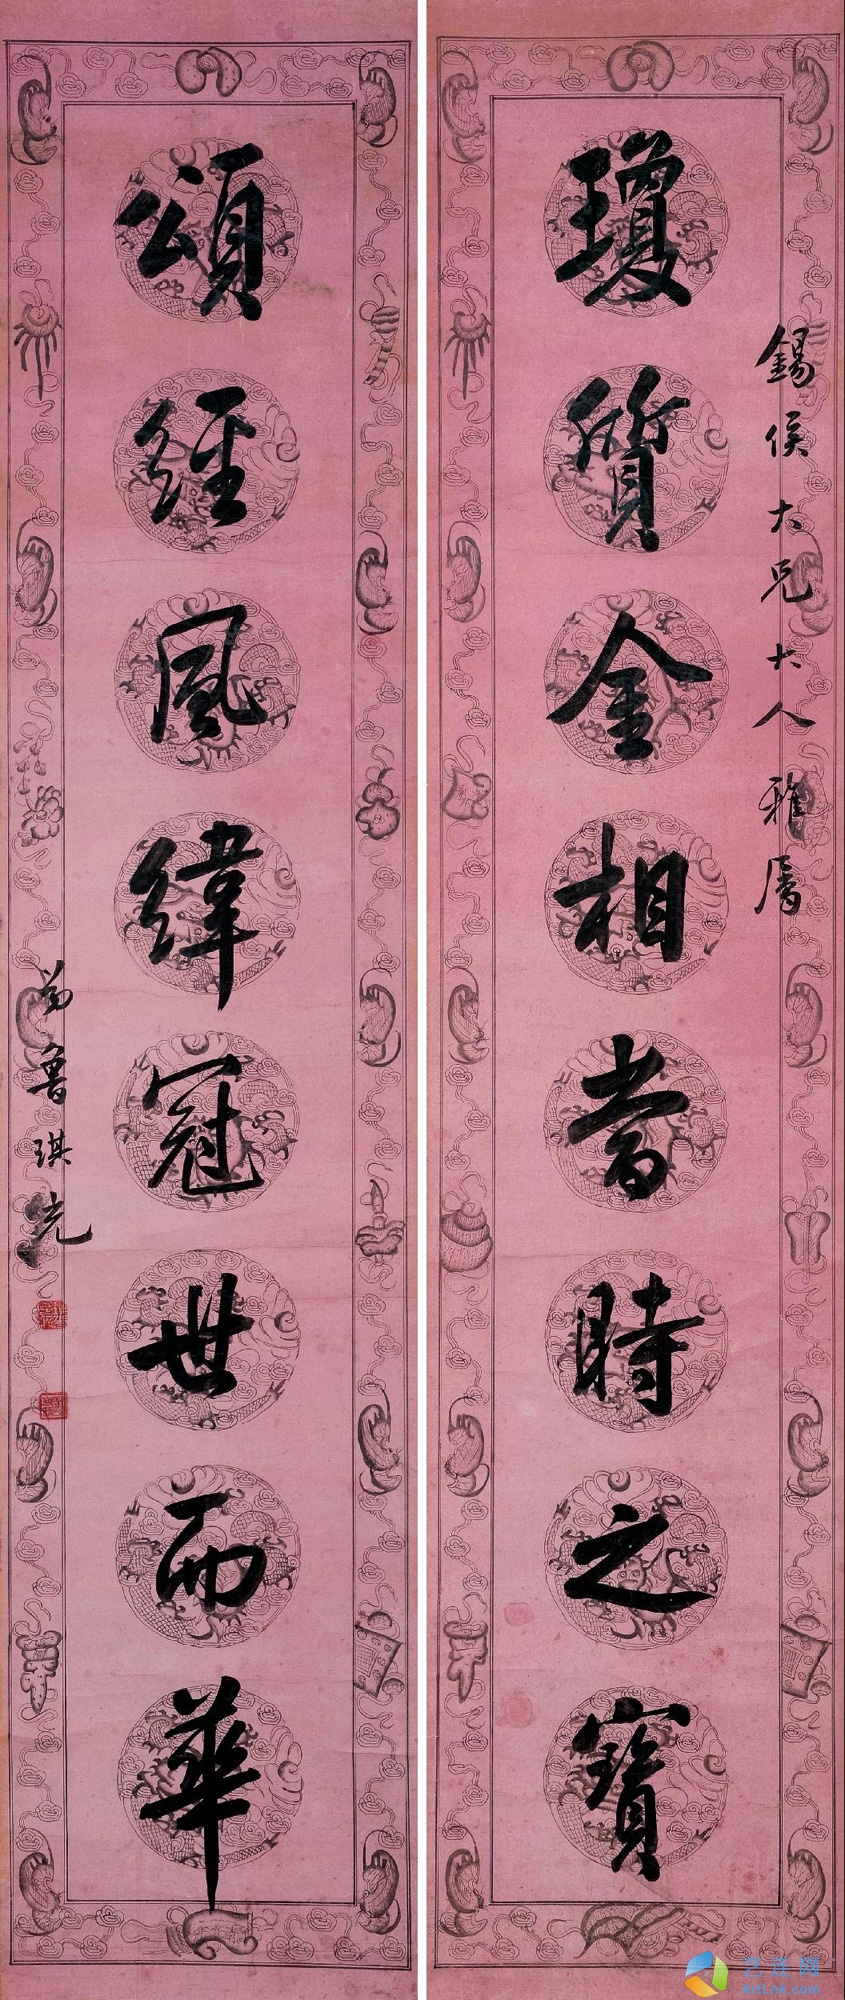 錫侯大兄大人雅屬
瓊質金相當時之寶
頌經風緯冠世而華
曹魯琪光
艺连网
ArtLnk.com